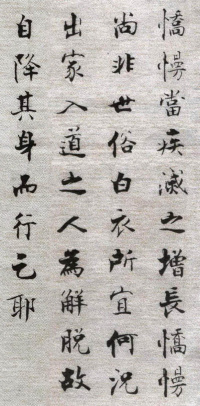 憍慢當疾滅之增長憍慢
尚非世俗白衣所宜何況
出家入道之人為解脫故
自降其身而行乞耶